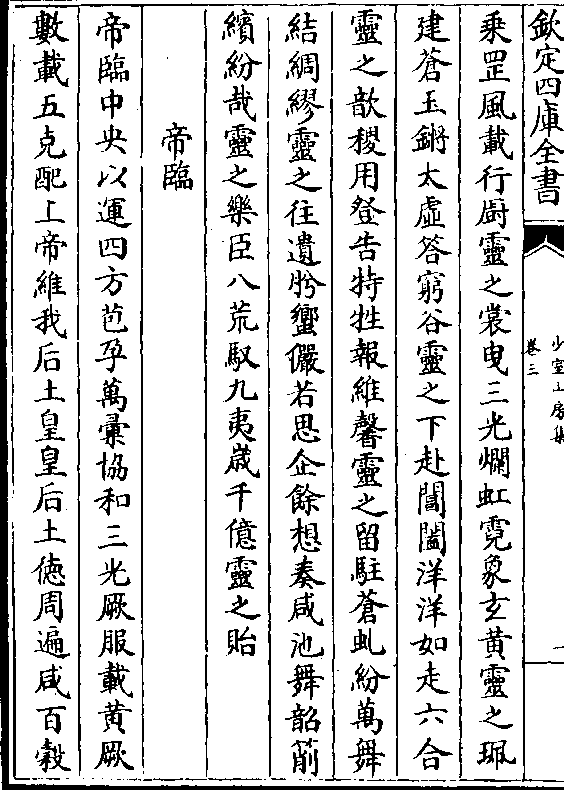 欽定四庫全書
少室山房集
卷三
一
乘罡風載行廚靈之裳曳三光爛虹霓象玄黃靈之珮
建蒼玉鏘太虛答窮谷靈之下赴閶闔洋洋如走六合
靈之歆稷用登告特牲報維馨靈之留駐蒼虬紛萬舞
結綢繆靈之往遺肹蠁儼若思企餘想奏咸池舞韶箾
繽紛哉靈之樂臣八荒馭九夷歲千億靈之貽
帝臨
帝臨中央以運四方苞孕萬彙協和三光厥服載黃厥
數載五克配上帝維我后土皇皇后土徳周遍咸百榖